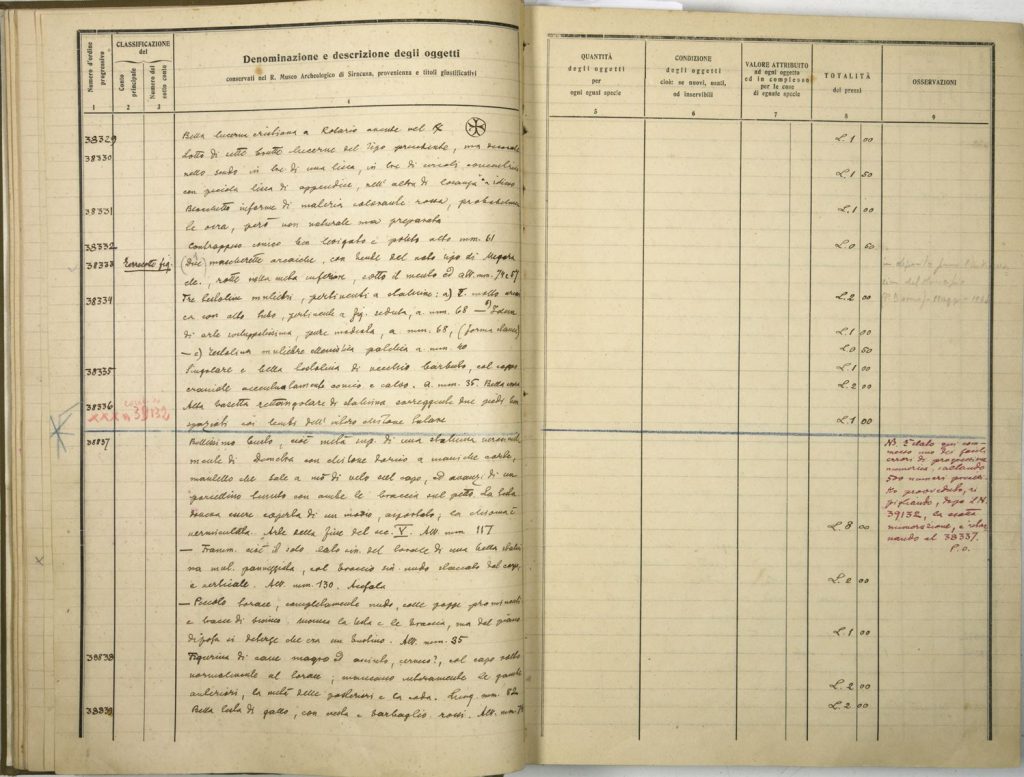 Numero d'ordine progressivo
CLASSIFICAZIONE del
Conto principale
Numero del sotto conto
Denominazione e descrizione degli oggetti
conservati nel R. Museo Archeologico di Siracusa, provenienza e titoli giustificativi
1 2 3 4
38329 Bella lucerna cristiana a Rosario avente nel
38330 Lotto di sette brutte lucerne del tipo precedente, ma
nello scudo in tre di una lira, in tre di circoli
con piccola lira di appendice, nell'altra di losanga
38331 Blocchetto informe di materia colorante rossa,
le ocra, però non naturale ma preparata
38332 Contrappeso conico ben levigato e polito alto mm. 61
38333 Terrecotte fig. (Due) mascherette arcaiche, con
rotte nella metà inferiore, sotto il mento alt. mm. 74 e 57
38334 Tre testoline muliebri, pertinenti a statuine: a)
ca con alto tubo, pertinente a fig. seduta, a mm. 68
di arte sviluppatissima, pure modiata, a mm. 68,
— c) Testolina muliebre ellenistica a mm. 40
38335 Singolare e bella testolina di vecchio barbuto, col cappo
craniale accentuatamente conico e calvo. a mm. 35.
38336 Alta basetta rettangolare di statuina sorreggente due piedi
coi lembi dell'
39132
38837 Bellissimo busto, cioè metà sup. di una statuina
mente di Demetra con chitone dorico a maniche corte,
mantello che sale a mò di velo sul capo, ed avanzi di un
porcellino tenuto con ambe le braccia sul petto. La testa
doveva essere coperta di un modio, asportato; la chioma è
vermicolata. Arte della fine del sec. V. Alt. mm. 117
— Framm. cioè il solo lato sin. del torace di una bella
na mul. panneggiata, col braccio sin. nudo staccato dal corpo,
e verticale. Alt. mm. 130. Acefala
— Piccolo torace, completamente nudo, colle poppe prominenti
e tracce di bianco. Manca la testa e le braccia, ma dal piano
di posa si deterge che era un bustino. Alt. mm. 35
38838 Figurina di cane magro ed
normalmente al torace; mancano interamente le gambe
anteriori, la metà delle posteriori e la coda. Lung. mm.
38839 Bella testa di gallo, con cresta e bargaglio rossi. Alt. mm.
QUANTITÀ
degli oggetti
per
ogni egual specie
CONDIZIONE
degli oggetti
cioè: se nuovi, usati,
od inservibili
VALORE ATTRIBUITO
ad ogni oggetto
ed in complesso
per le cose
di eguale specie
TOTALITÀ
dei prezzi
OSSERVAZIONI
5 6 7 8 9
L. 1 00
L. 1 50
L. 1 00
L. 0 60
L. 2 00
L. 1 00
L. 0 50
L. 1 00
L. 2 00
L. 1 00
N.B. È stato qui com-
messo uno dei
errori di progressione
numerica, saltando
500 numeri
Ho provveduto, ri
pigliando, dopo il N.
39132, la esatta
numerazione, e
nando al 38337.
P. O.
L. 8 00
L. 2 00
L. 1 00
L. 2 00
L. 2 00